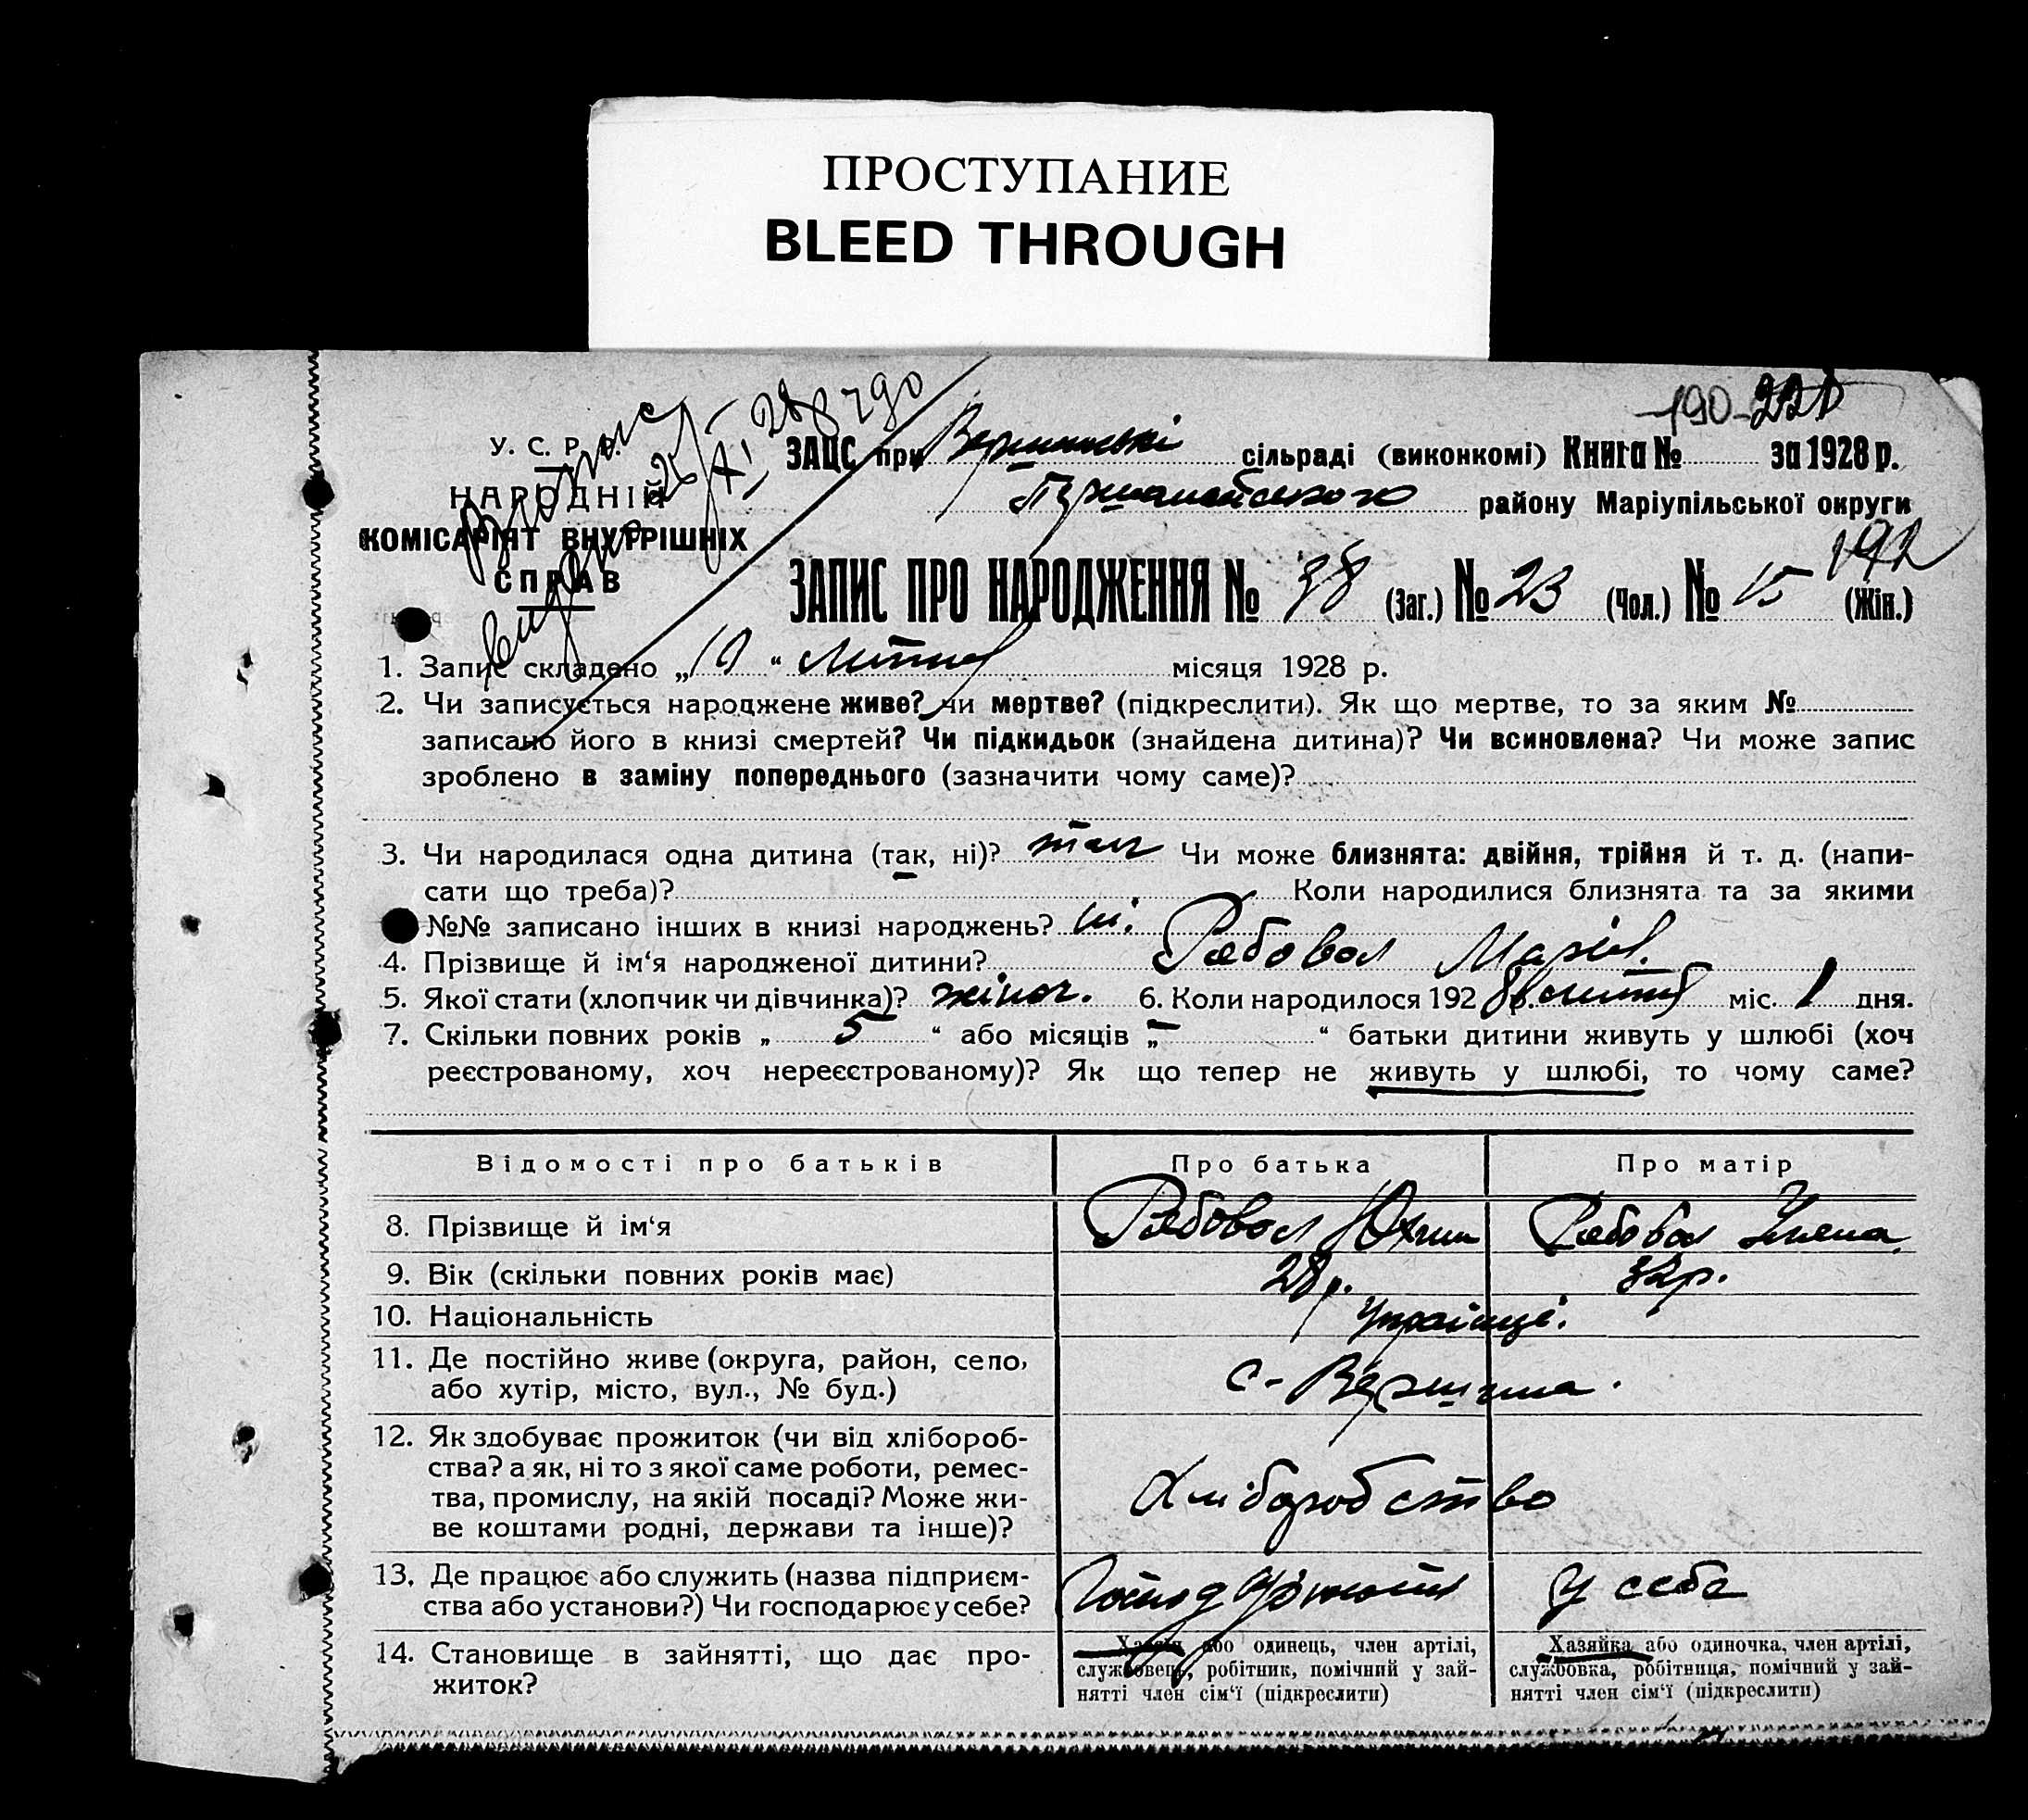 ПРОСТУПАНИЕ
BLEED THROUGH
190-
У. С. Р. Р.
НАРОДНІЙ
КОМІСАРІЯТ ВНУТРІШНІХ
СПРАВ
Виписка
ЗАЦС при сільраді (виконкомі) Книга № за 1928 р.
Першотравенського району Маріупільської округи
192
ЗАПИС ПРО НАРОДЖЕННЯ № 38 (Заг.) № 23 (Чол.) № 15 (Жін.)
1. Запис складено „10“ місяця 1928 р.
2. Чи записується народжене живе? чи мертве? (підкреслити). Як що мертве, то за яким №
записано його в книзі смертей? Чи підкидьок (знайдена дитина)? Чи всиновлена? Чи може запис
зроблено в заміну попереднього (зазначити чому саме)?
3. Чи народилася одна дитина (так, ні)? так Чи може близнята: двійня, трійня й т. д. (напи-
сати що треба)? Коли народилися близнята та за якими
№№ записано інших в книзі народжень? ні.
4. Прізвище й ім‘я народженої дитини? Рябовол Марія.
5. Якої стати (хлопчик чи дівчинка)? жіноч. 6. Коли народилося 1928 р. міс. 1 дня.
7. Скільки повних років „ 5 “ або місяців „ – “ батьки дитини живуть у шлюбі (хоч
реєстрованому, хоч нереєстрованому)? Як що тепер не живуть у шлюбі, то чому саме?
Відомості про батьків Про батька Про матір
8. Прізвище й ім‘я Рябовол Юхим Рябовол Уляна
9. Вік (скільки повних років має) 28 р. 32 р.
10. Національність Українці.
11. Де постійно живе (округа, район, село,
або хутір, місто, вул., № буд.) с- Вершина.
12. Як здобуває прожиток (чи від хлібороб-
ства? а як, ні то з якої саме роботи, ремес-
тва, промислу, на якій посаді? Може жи-
ве коштами родні, держави та інше)? Хліборобство
13. Де працює або служить (назва підприєм-
ства або установи?) Чи господарює у себе? у себе
14. Становище в зайнятті, що дає про-
житок?
Хазяїн або одинець, член артілі,
службовець, робітник, помічний у зай-
нятті член сім‘ї (підкреслити)
Хазяйка або одиночка, член артілі,
службовка, робітниця, помічний у зай-
нятті член сім‘ї (підкреслити)